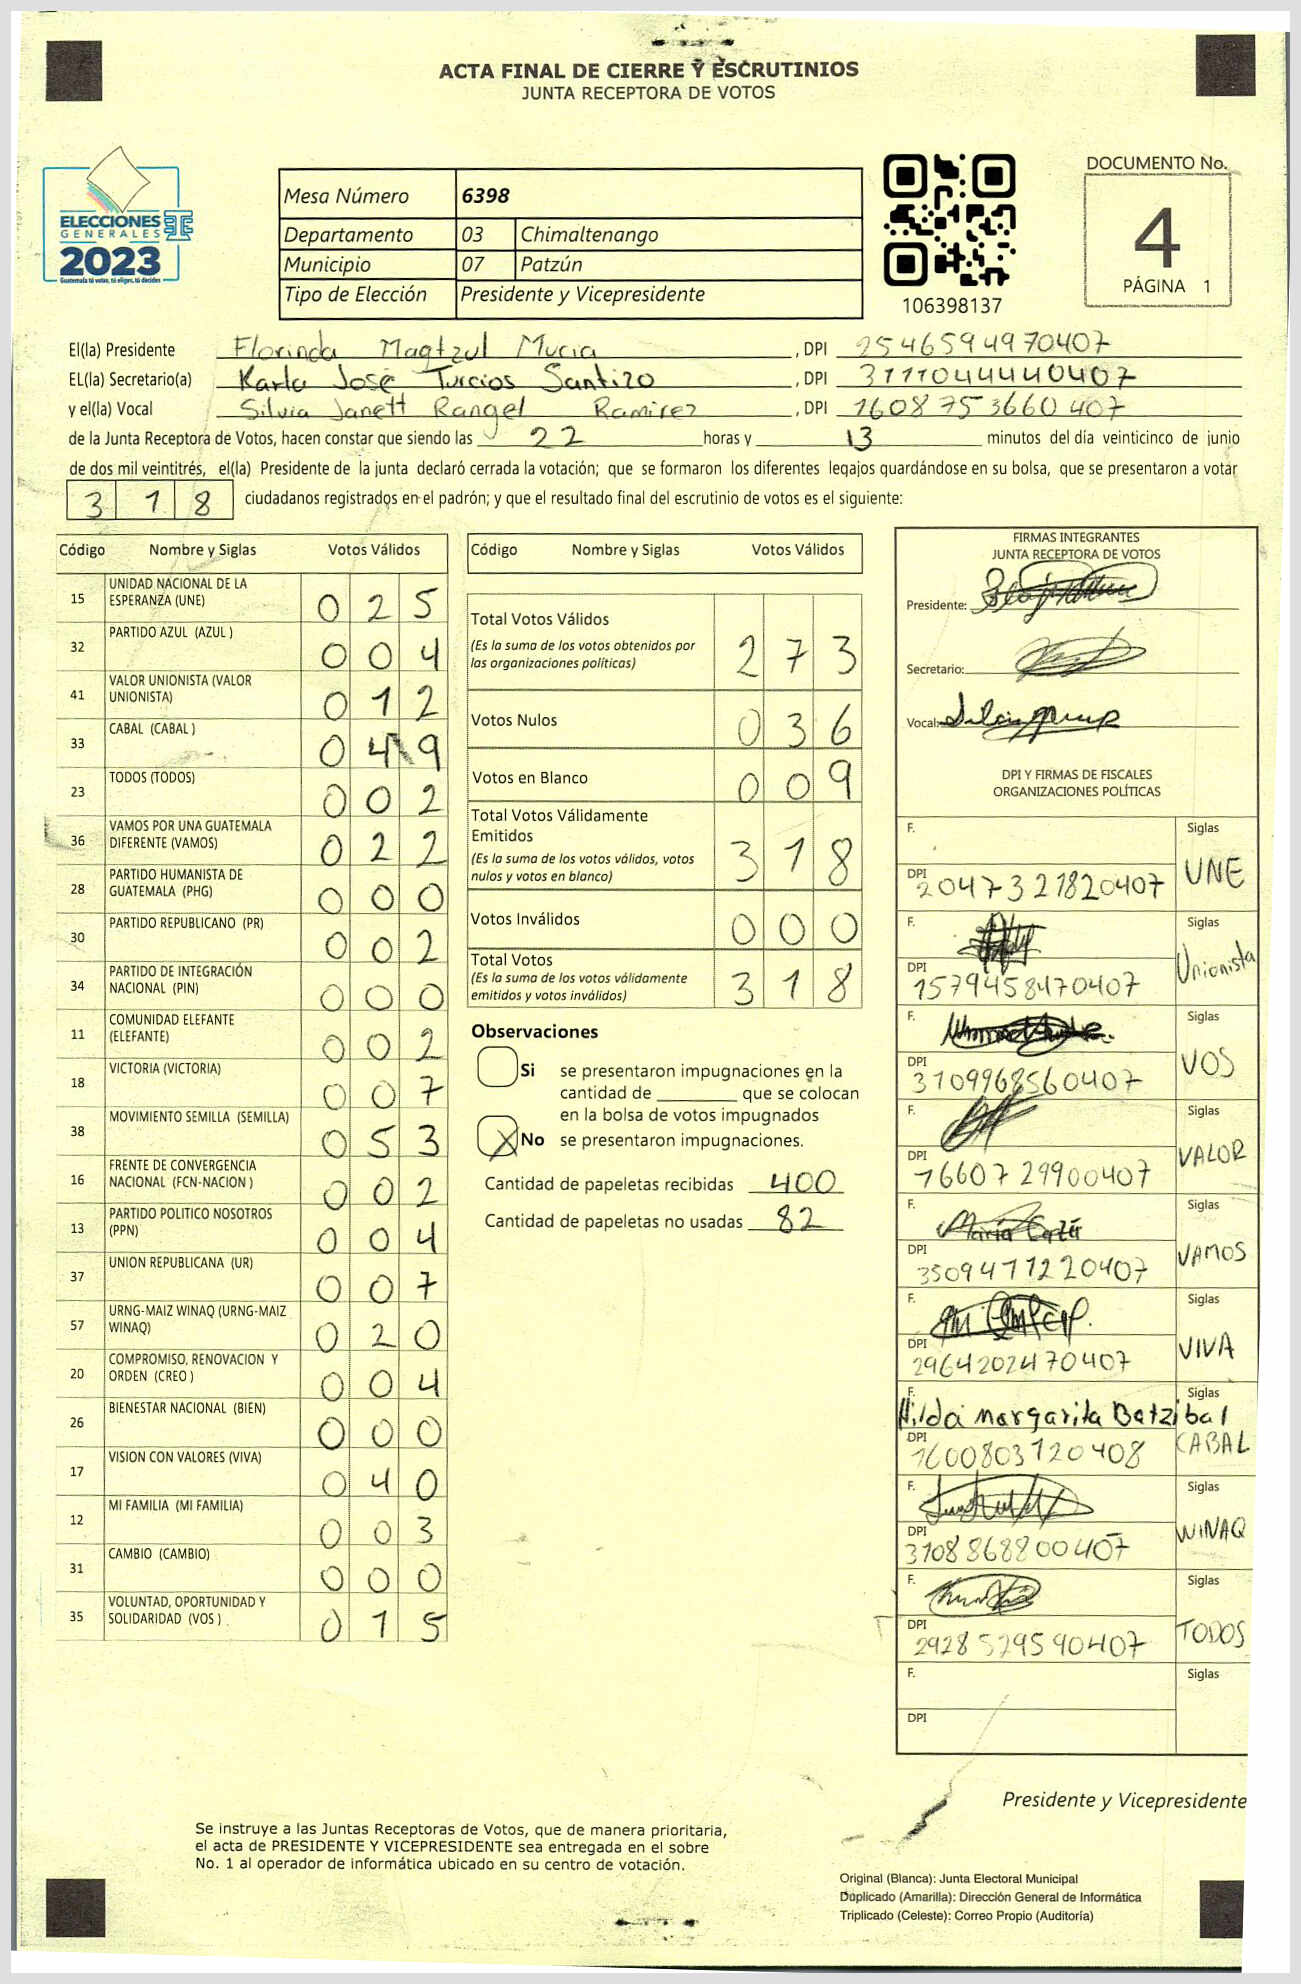 ACTA FINAL DE CIERRE Y ESCRUTINIOS
JUNTA RECEPTORA DE VOTOS
ELECCIONES
GENERALES
2023
Guatemala tú votas, tú eliges, tú decides
Mesa Número 6398
Departamento 03 Chimaltenango
Municipio 07 Patzún
Tipo de Elección Presidente y Vicepresidente
106398137
DOCUMENTO No.
4
PÁGINA 1
El(la) Presidente Florinda Magtzul Mucia, DPI 2546594970407
EL(la) Secretario(a) Karla José Turcios Santizo, DPI 3111044440407
y el(la) Vocal Silvia Janett Rangel Ramirez, DPI 1608753660407
de la Junta Receptora de Votos, hacen constar que siendo las 22 horas y 13 minutos del día veinticinco de junio
de dos mil veintitrés, el(la) Presidente de la junta declaró cerrada la votación; que se formaron los diferentes legajos guardándose en su bolsa, que se presentaron a votar
318 ciudadanos registrados en el padrón; y que el resultado final del escrutinio de votos es el siguiente:
Código Nombre y Siglas Votos Válidos
15 UNIDAD NACIONAL DE LA ESPERANZA (UNE) 025
32 PARTIDO AZUL (AZUL ) 004
41 VALOR UNIONISTA (VALOR UNIONISTA) 012
33 CABAL (CABAL ) 049
23 TODOS (TODOS) 002
36 VAMOS POR UNA GUATEMALA DIFERENTE (VAMOS) 022
28 PARTIDO HUMANISTA DE GUATEMALA (PHG) 000
30 PARTIDO REPUBLICANO (PR) 002
34 PARTIDO DE INTEGRACIÓN NACIONAL (PIN) 000
11 COMUNIDAD ELEFANTE (ELEFANTE) 002
18 VICTORIA (VICTORIA) 007
38 MOVIMIENTO SEMILLA (SEMILLA) 053
16 FRENTE DE CONVERGENCIA NACIONAL (FCN-NACION ) 002
13 PARTIDO POLITICO NOSOTROS (PPN) 004
37 UNION REPUBLICANA (UR) 007
57 URNG-MAIZ WINAQ (URNG-MAIZ WINAQ) 020
20 COMPROMISO, RENOVACION Y ORDEN (CREO ) 004
26 BIENESTAR NACIONAL (BIEN) 000
17 VISION CON VALORES (VIVA) 040
12 MI FAMILIA (MI FAMILIA) 003
31 CAMBIO (CAMBIO) 000
35 VOLUNTAD, OPORTUNIDAD Y SOLIDARIDAD (VOS ) 015
Código Nombre y Siglas Votos Válidos
Total Votos Válidos
(Es la suma de los votos obtenidos por
las organizaciones políticas) 273
Votos Nulos 036
Votos en Blanco 009
Total Votos Válidamente
Emitidos
(Es la suma de los votos válidos, votos
nulos y votos en blanco) 318
Votos Inválidos 000
Total Votos
(Es la suma de los votos válidamente
emitidos y votos inválidos) 318
Observaciones
Si se presentaron impugnaciones en la
cantidad de ________ que se colocan
en la bolsa de votos impugnados
X No se presentaron impugnaciones.
Cantidad de papeletas recibidas 400
Cantidad de papeletas no usadas 82
FIRMAS INTEGRANTES
JUNTA RECEPTORA DE VOTOS
Presidente:
Secretario:
Vocal:
DPI Y FIRMAS DE FISCALES
ORGANIZACIONES POLÍTICAS
F. Siglas
DPI 2047321820407 UNE
F. Siglas
DPI 1579458470407 Unionista
F. Siglas
DPI 3109968560407 VOS
F. Siglas
DPI 1660729900407 VALOR
F. Siglas
DPI 3509411220407 VAMOS
F. Siglas
DPI 2964202470407 VIVA
F. Siglas
Hilda Margarita Batzibal
DPI 1600803120408 CABAL
F. Siglas
DPI 3108868800407 WINAQ
F. Siglas
DPI 2928529590407 TODOS
F. Siglas
DPI
Presidente y Vicepresidente
Se instruye a las Juntas Receptoras de Votos, que de manera prioritaria,
el acta de PRESIDENTE Y VICEPRESIDENTE sea entregada en el sobre
No. 1 al operador de informática ubicado en su centro de votación.
Original (Blanca): Junta Electoral Municipal
Duplicado (Amarilla): Dirección General de Informática
Triplicado (Celeste): Correo Propio (Auditoría)